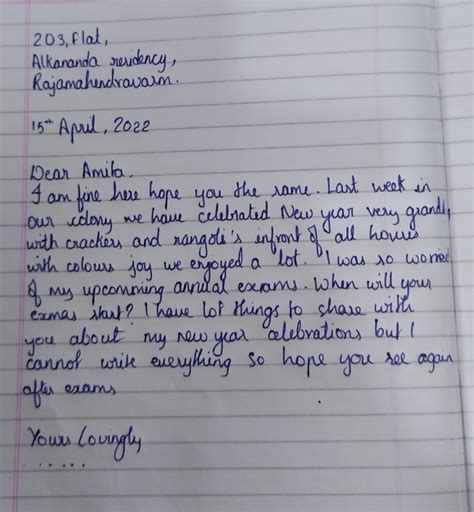 203, Flat,
Alkananda residency,
Rajamahendravarm.
15th April, 2022
Dear Amita,
I am fine here hope you the same. Last week in
our colony we have celebrated New year very grandly
with crackers and rangoli's infront of all houses
with colours joy we enjoyed a lot. I was so worried
of my upcomming annual exams. When will your
exmas start? I have lot things to share with
you about my new year celebrations but I
cannot write everything so hope you see again
after exams
Yours Lovingly
......